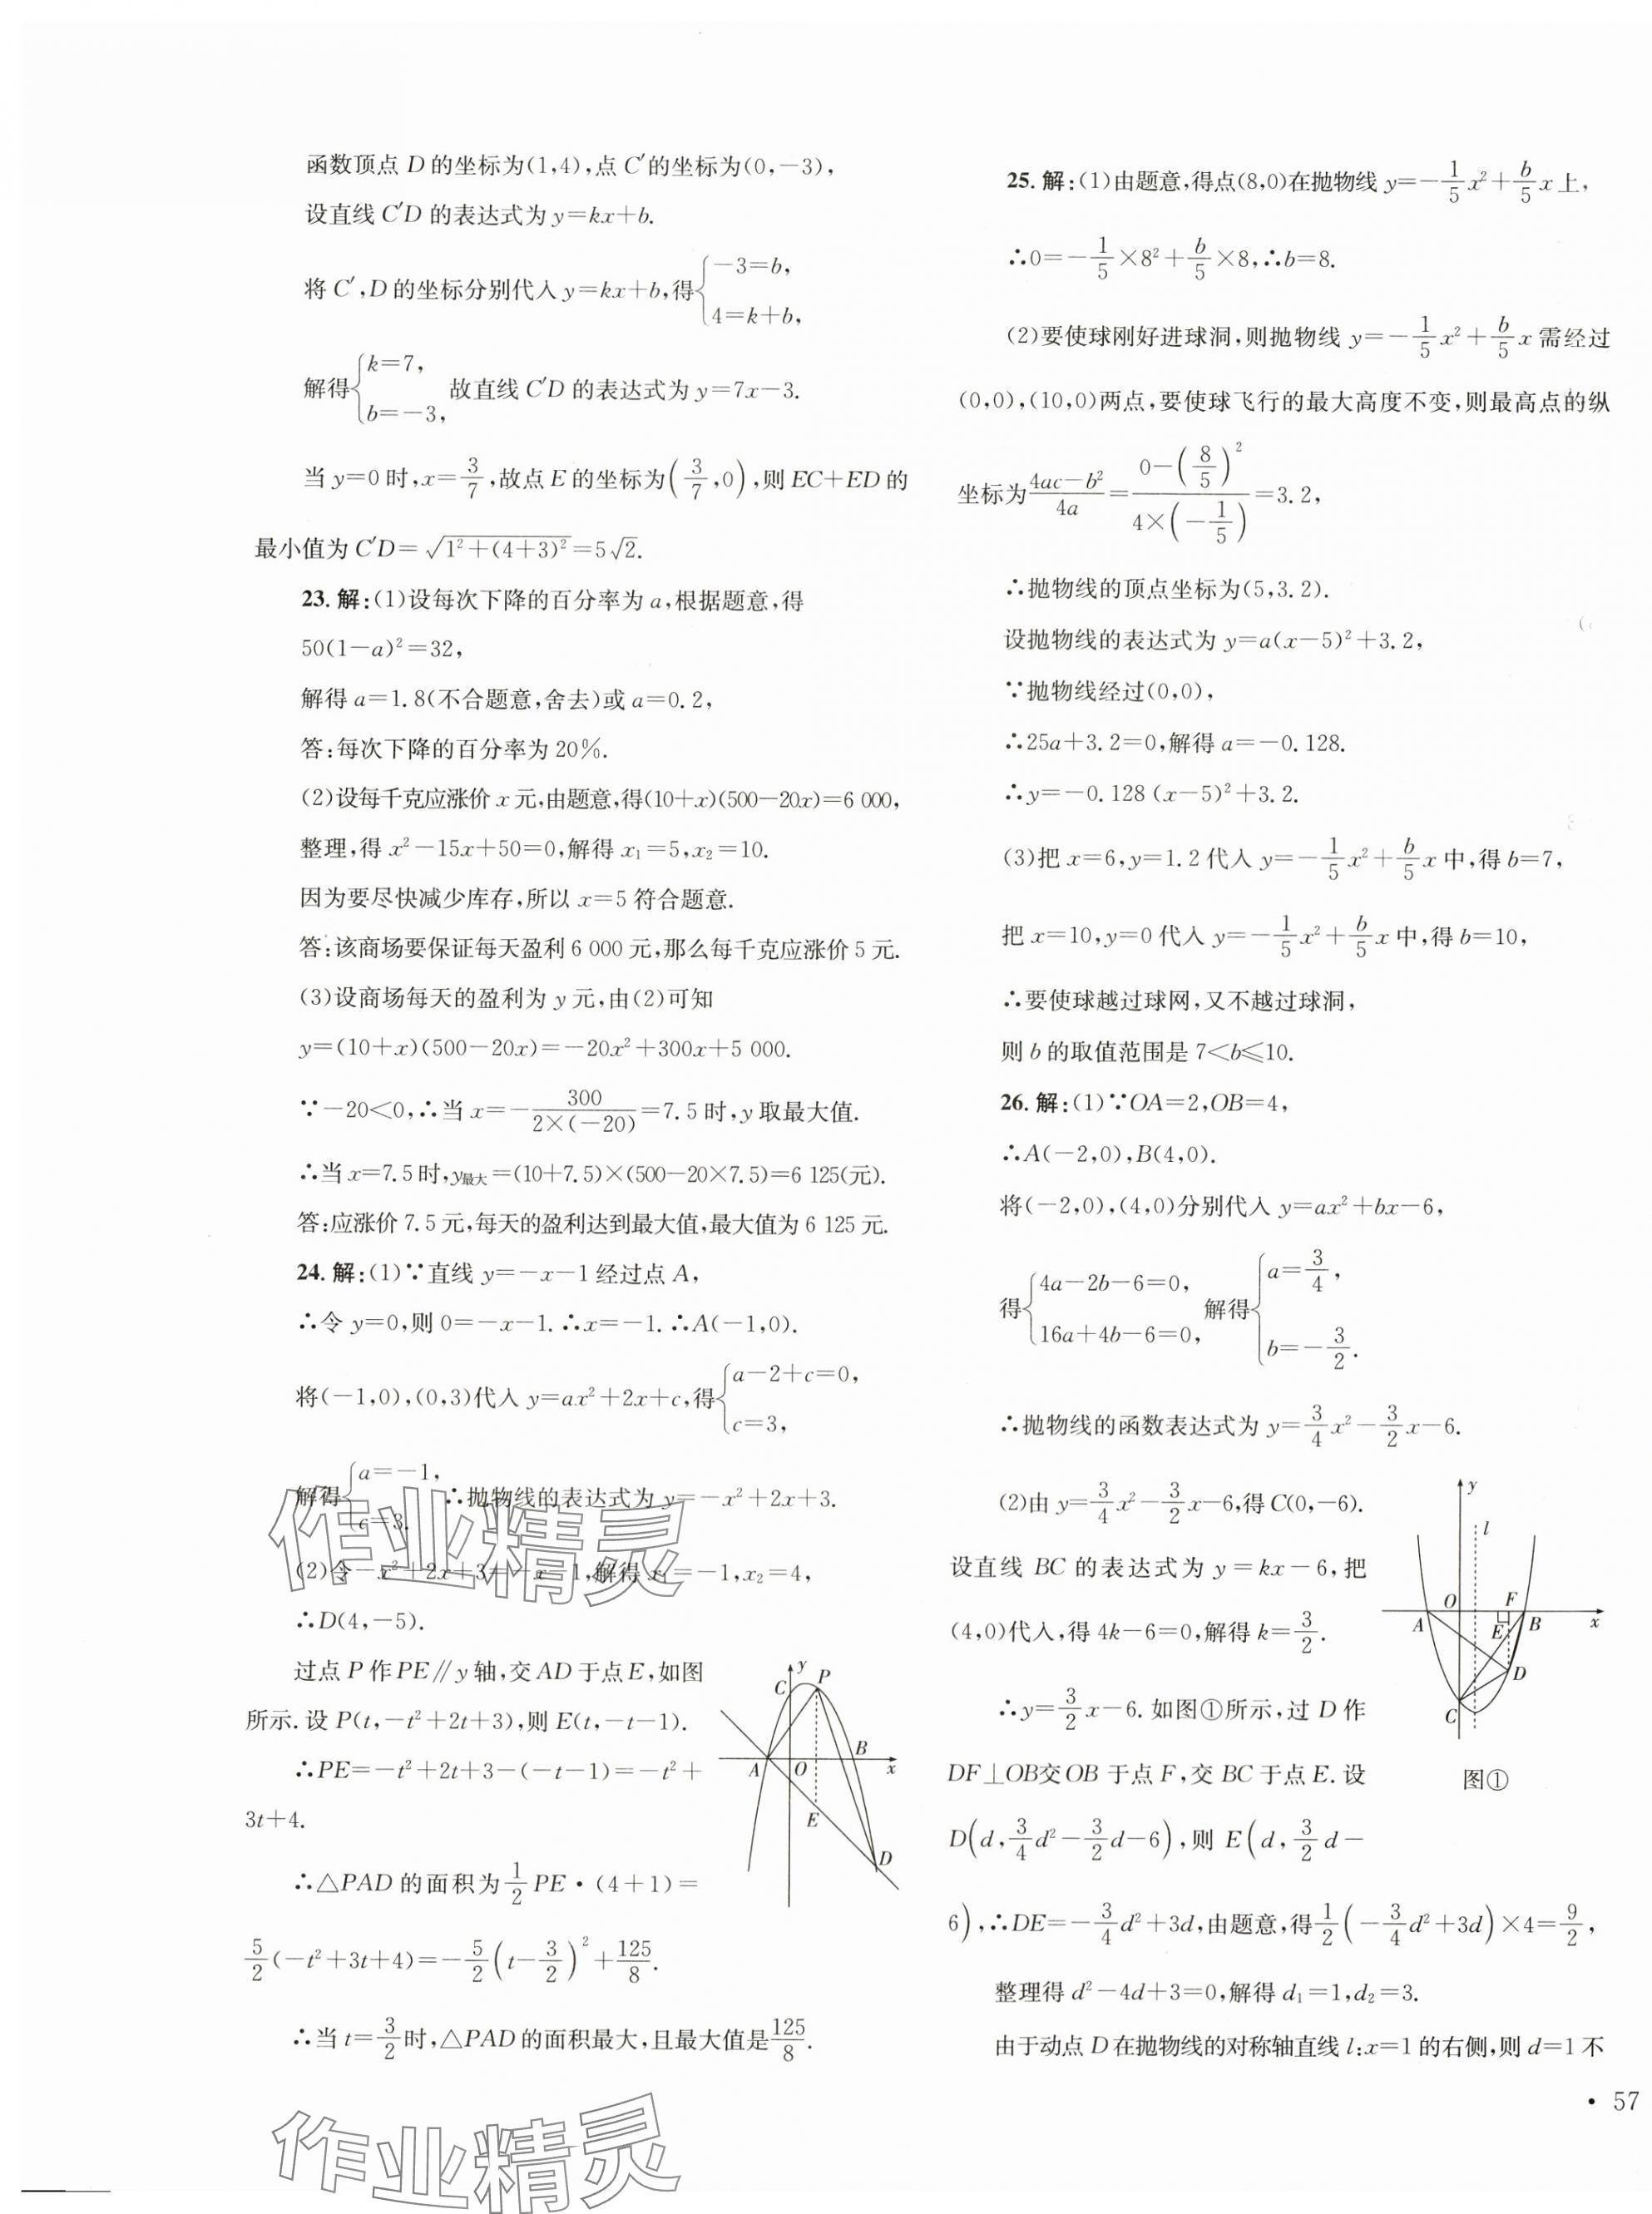 函数顶点 D 的坐标为(1,4),点 C′的坐标为(0,-3),
设直线 C′D 的表达式为 y=kx+b.
将 C′,D 的坐标分别代入 y=kx+b,得{-3=b, 4=k+b,
解得{k=7, b=-3, 故直线 C′D 的表达式为 y=7x-3.
当 y=0 时,x=3/7,故点 E 的坐标为(3/7,0),则 EC+ED 的
最小值为 C′D=√(1²+(4+3)²)=5√2.
23.解:(1)设每次下降的百分率为 a,根据题意,得
50(1-a)²=32,
解得 a=1.8(不合题意,舍去)或 a=0.2,
答:每次下降的百分率为 20%.
(2)设每千克应涨价 x 元,由题意,得(10+x)(500-20x)=6 000,
整理,得 x²-15x+50=0,解得 x₁=5,x₂=10.
因为要尽快减少库存,所以 x=5 符合题意.
答:该商场要保证每天盈利 6 000 元,那么每千克应涨价 5 元.
(3)设商场每天的盈利为 y 元,由(2)可知
y=(10+x)(500-20x)=-20x²+300x+5 000.
∵-20<0,∴当 x=-300/(2×(-20))=7.5 时,y 取最大值.
∴当 x=7.5 时,y最大=(10+7.5)×(500-20×7.5)=6 125(元).
答:应涨价 7.5 元,每天的盈利达到最大值,最大值为 6 125 元.
24.解:(1)∵直线 y=-x-1 经过点 A,
∴令 y=0,则 0=-x-1.∴x=-1.∴A(-1,0).
将(-1,0),(0,3)代入 y=ax²+2x+c,得{a-2+c=0, c=3,
解得{a=-1, c=3. ∴抛物线的表达式为 y=-x²+2x+3.
(2)令-x²+2x+3=-x-1,解得 x₁=-1,x₂=4,
∴D(4,-5).
过点 P 作 PE∥y 轴,交 AD 于点 E,如图
所示.设 P(t,-t²+2t+3),则 E(t,-t-1).
∴PE=-t²+2t+3-(-t-1)=-t²+
3t+4.
∴△PAD 的面积为1/2 PE·(4+1)=
5/2(-t²+3t+4)=-5/2(t-3/2)²+125/8.
∴当 t=3/2时,△PAD 的面积最大,且最大值是125/8.
y
C
P
A
O
B
x
E
D
作业精灵
作业精灵
25.解:(1)由题意,得点(8,0)在抛物线 y=-1/5x²+b/5x 上,
∴0=-1/5×8²+b/5×8,∴b=8.
(2)要使球刚好进球洞,则抛物线 y=-1/5x²+b/5x 需经过
(0,0),(10,0)两点,要使球飞行的最大高度不变,则最高点的纵
坐标为(4ac-b²)/4a=(0-(8/5)²)/(4×(-1/5))=3.2,
∴抛物线的顶点坐标为(5,3.2).
设抛物线的表达式为 y=a(x-5)²+3.2,
∵抛物线经过(0,0),
∴25a+3.2=0,解得 a=-0.128.
∴y=-0.128 (x-5)²+3.2.
(3)把 x=6,y=1.2 代入 y=-1/5x²+b/5x 中,得 b=7,
把 x=10,y=0 代入 y=-1/5x²+b/5x 中,得 b=10,
∴要使球越过球网,又不越过球洞,
则 b 的取值范围是 7<b≤10.
26.解:(1)∵OA=2,OB=4,
∴A(-2,0),B(4,0).
将(-2,0),(4,0)分别代入 y=ax²+bx-6,
得{4a-2b-6=0, 16a+4b-6=0, 解得{a=3/4, b=-3/2.
∴抛物线的函数表达式为 y=3/4x²-3/2x-6.
(2)由 y=3/4x²-3/2x-6,得 C(0,-6).
设直线 BC 的表达式为 y=kx-6,把
(4,0)代入,得 4k-6=0,解得 k=3/2.
∴y=3/2x-6.如图①所示,过 D 作
DF⊥OB交 OB 于点 F,交 BC 于点 E.设
D(d,3/4d²-3/2d-6),则 E(d,3/2d-
6),∴DE=-3/4d²+3d,由题意,得1/2(-3/4d²+3d)×4=9/2,
整理得 d²-4d+3=0,解得 d₁=1,d₂=3.
由于动点 D 在抛物线的对称轴直线 l:x=1 的右侧,则 d=1 不
y
l
O
F
A
E
B
x
D
C
图①
· 57